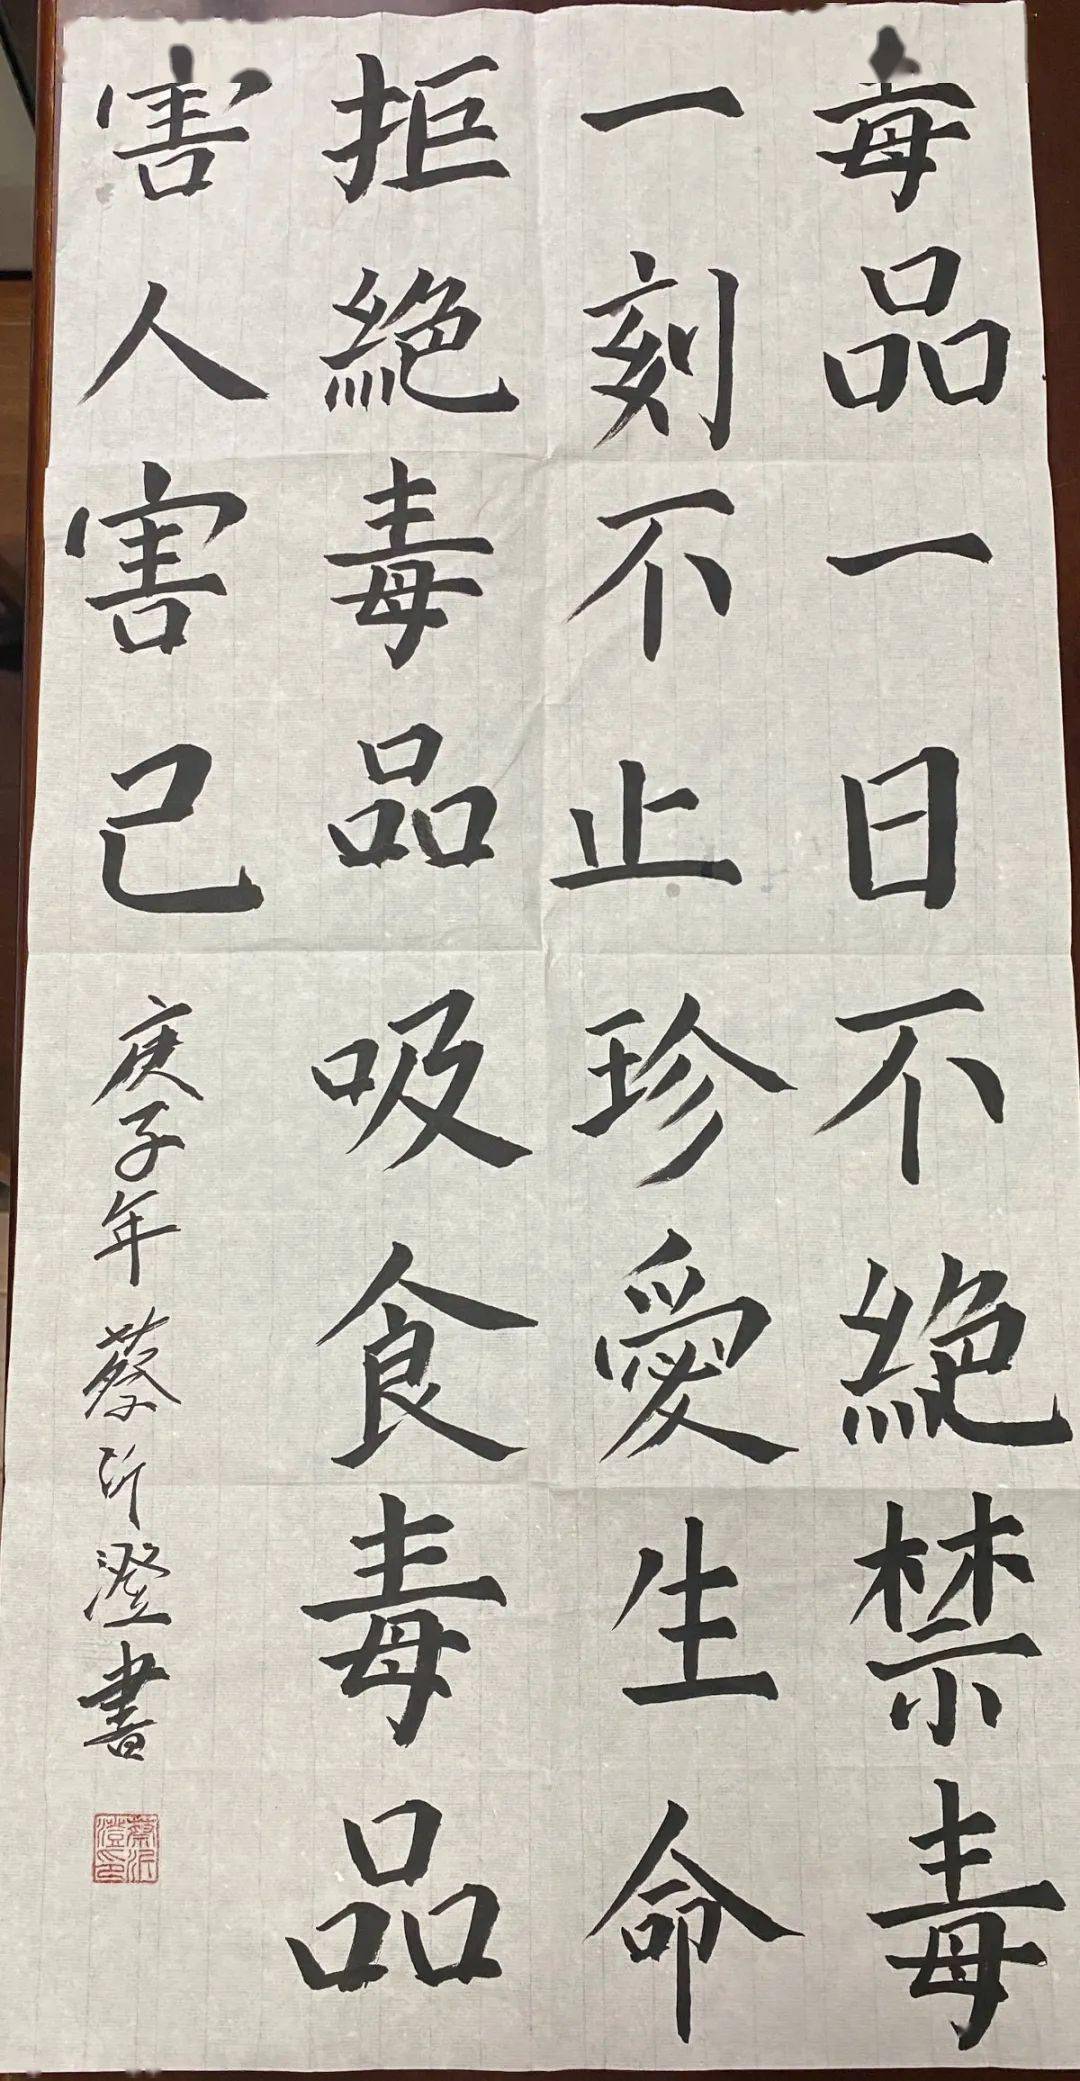 毒品一日不絕禁毒
一刻不止珍愛生命
拒絕毒品吸食毒品
害人害己
庚子年蔡沂澄書
蔡沂澄印